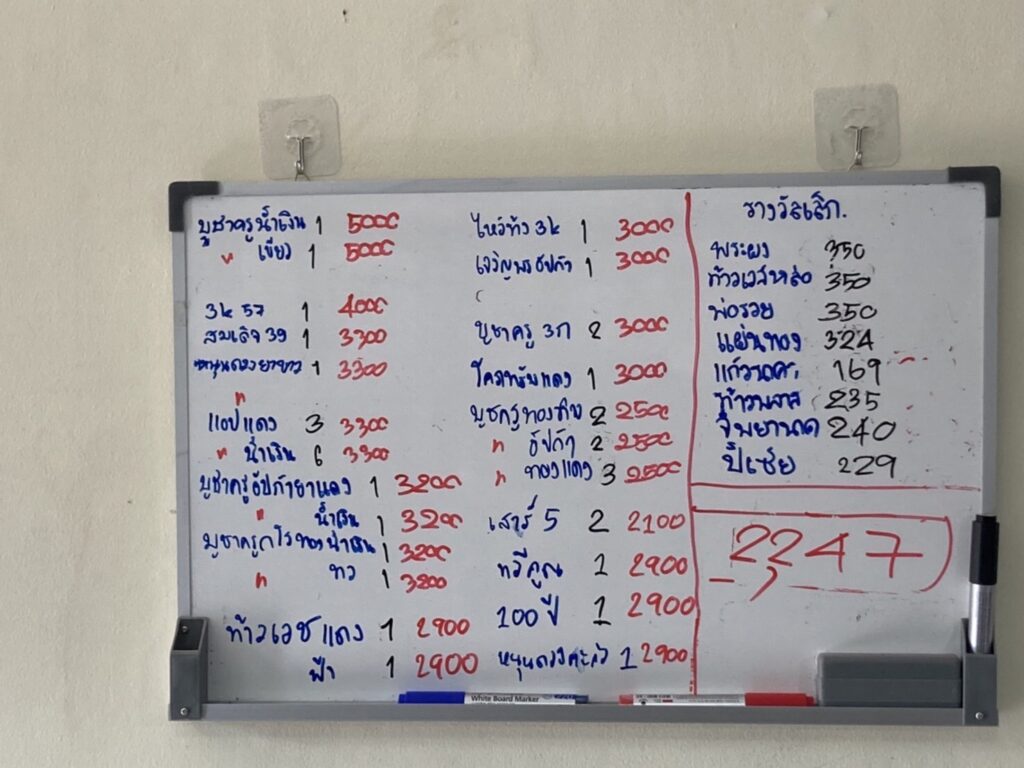 บูชาครูน้ำเงิน 1 5000
" เขียว 1 5000
3k 57 1 4000
สมเด็จ 39 1 3300
1 3300
"
แอปแดง 3 3300
" น้ำเงิน 6 3300
บูชาครูอัปก้ายาแดง 1 3200
" น้ำเงิน 1 3200
บูชาครู น้ำเงิน 1 3200
" 1 3200
ท้าวเวชแดง 1 2900
ฟ้า 1 2900
ไหว้ข้าง 3k 1 3000
เจริญพรอัปก้า 1 3000
บูชาครู 3ก 2 3000
แดง 1 3000
บูชครูทองทิพ 2 2500
" อัปก้า 2 2500
" ทองแดง 3 2500
เสาร์ 5 2 2100
ทวีคูณ 1 2900
100 ปี 1 2900
หนุนดวงตะกั่ว 1 2900
รางวัลเล็ก.
พระผง 350
ท้าวเวสหล่อ 350
พ่อรวย 350
แผ่นทอง 324
169
235
240
ปี่เซียะ 229
2247
White Board Marker